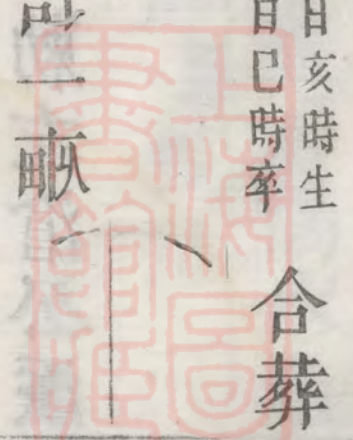 日亥時生
日巳時卒
合葬
計一畝